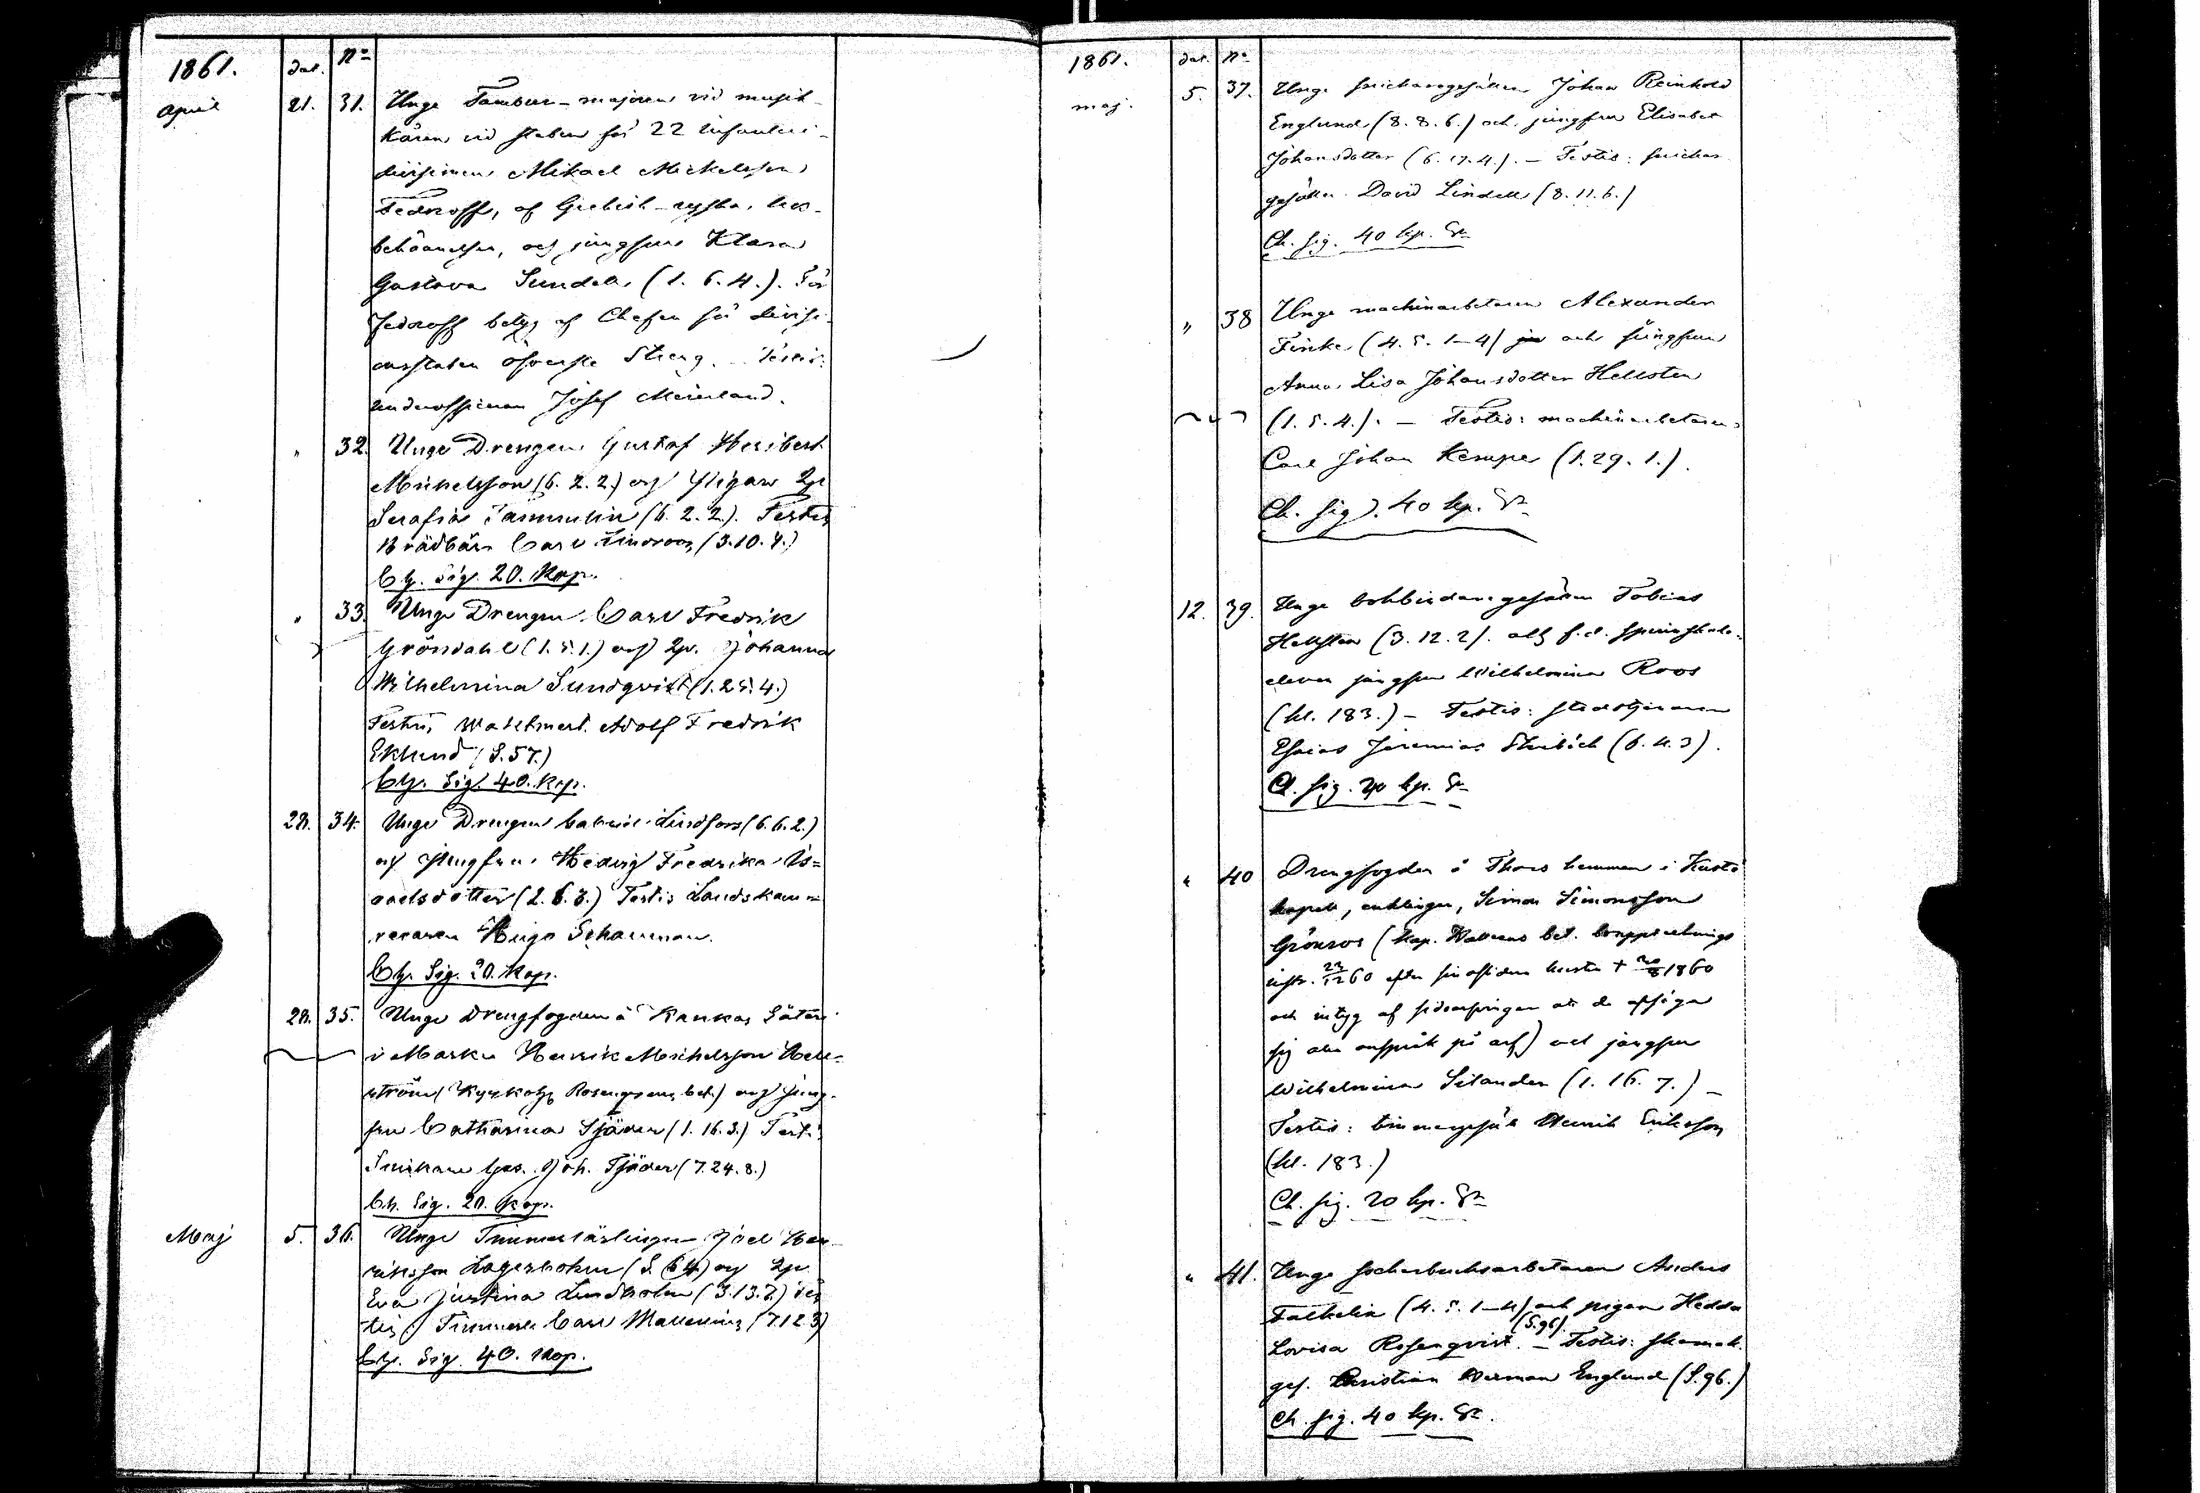 1861. dat. No
april 21. 31. Unge Tambur-majoren vid musik-
kåren vid staben för 22 infanteri-
divisionen Mikael Mickelsson
Fedroff, af Grekisk-ryska, tros-
bekännelsen, och jungfrun Klara
Gustava Sundell (1. 6. 4.). För
Fedroff betyg af Chefen för divisi-
onsstaben öfverste Streng. Testis:
underofficeren Josef Meierland.
" 32. Unge Drengen Gustaf Heribert
Michelsson (6. 2. 2.) och Pigan
Serafia Tammelin (6. 2. 2.). Testis
Brädbär. Carl Lindroos (3. 10. 4.)
Ch. Sig. 20. Kop.
" 33. Unge Drengen Carl Fredrik
Gröndahl (1. 5. 1.) och Johanna
Wilhelmina Sundqvist (1. 25. 4.)
Testis, Adolf Fredrik
Eklund (S. 57.)
Ch. Sig. 40. Kop.
28. 34. Unge Drengen Gabriel Lindfors (6. 6. 2.)
och Jungfrun Hedvig Fredrika Is=
aelsdotter (2. 6. 3.) Testis Landskam=
reraren Hugo Schauman.
Ch. Sig. 20. Kop.
28. 35. Unge Drengfogden å Kankas Säteri
i Masku Henrik Michelsson Hell=
ström ( Rosengrens bet.) och Jung-
fru Catharina Tjäder (1. 16. 3.) Testis
Snikare Ges. Joh. Tjäder (7. 24. 8.)
Ch. Sig. 20. Kop.
Maj 5. 36. Unge Timmerlärlingen Joel Hen-
riksson Lagerbohm (S. 64) och
Eva Justina Lindholm (3. 13. 3.) Tes
tis Timmerk. Carl Mallenius (7. 12. 3)
Ch. Sig. 40. Kop.
1861. dat. No
maj. 5. 37. Unge snickaregesällen Johan Reinhold
Englund (8. 8. 6.) och jungfrun Elisabet
Johansdotter (6. 17. 4.). – Testis: snickar
gesällen David Lindell (8. 11. 6.)
Ch. sig. 40 kp. Sr
" 38 Unge machinarbetaren Alexander
Finke (4. 5. 1–4) och jungfrun
Anna Lisa Johansdotter Hellsten
(1. 5. 4.). – Testis: machinarbetaren
Carl Johan Kemper (1. 29. 1.).
Ch. sig. 40 kp. Sr
12. 39. Unge bokbindaregesällen Tobias
Hellsten (3. 12. 2). och f.d. spinnskole-
eleven jungfrun Wilhelmina Roos
(kl. 183.) – Testis: stadstjenaren
Esaias Jeremias (6. 4. 3).
Ch. sig. 20 kp. Sr
" 40 Drengfogden å Thors hemman i Kustö
kapell, enklingen, Simon Simonsson
Grönroos (kap. Wallens bet. boupptecknings
instr. 22/12 60 efter sin afidna hustru + 20/8 1860
och intyg af att de afsäga
sig alla anspråk på arf) och jungfrun
Wilhelmina Silander (1. 16. 7.) –
Testis: timmergesäll Henrik Eriksson
(kl. 183.)
Ch. sig. 20 kp. Sr
" 41. Unge sockerbruksarbetaren Anders
Falkelin (4. 5. 1–4) och pigan Hedda
Lovisa Rosenqvist (S. 96). – Testis: skomak.
ges. Christian Herman Englund (S. 96.)
Ch. sig. 40 kp. Sr.